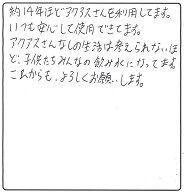 約14年ほどアクアスさんを利用してます。
いつも安心して使用できてます。
アクアスさんなしの生活は考えられないほ
ど、子供たちみんなの飲み水になってます。
これからも、よろしくお願いします。